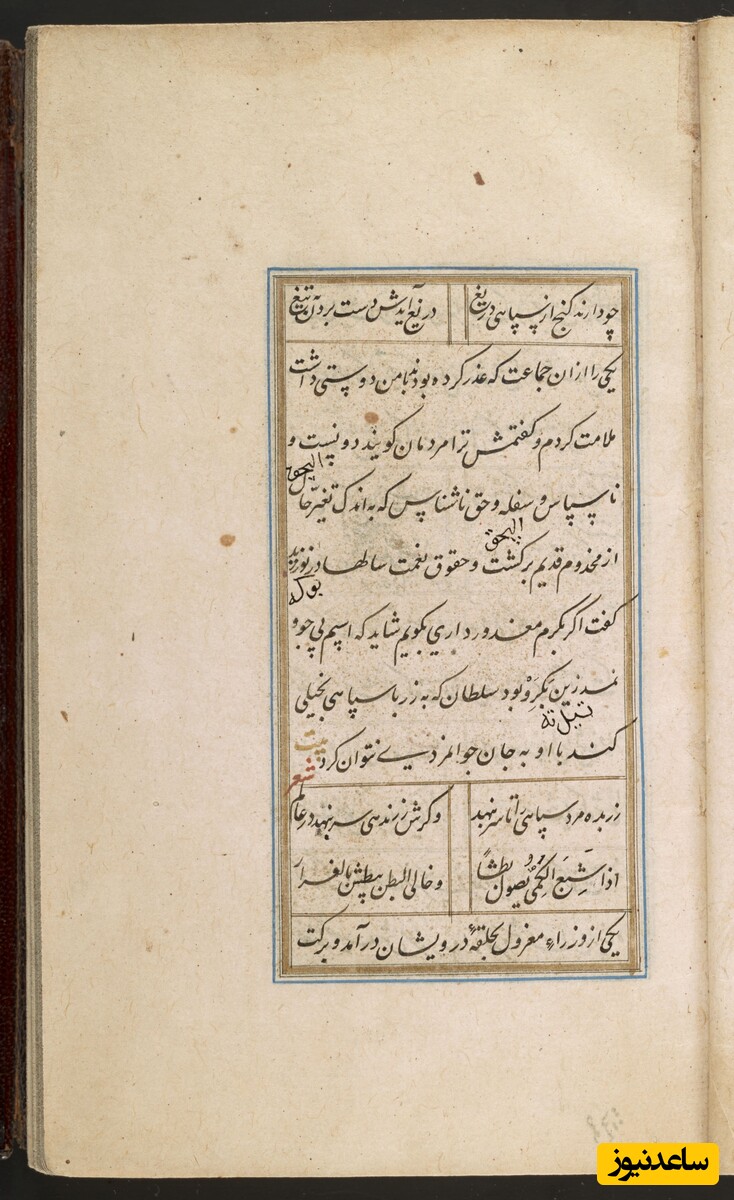 چو دارند کنج از سپاهی دریغ دریغ آیدش دست بردن به تیغ
یکی را از ان جماعت که عذر کرده بودند با من دوستی داشت
ملامت کردم و کفتمش ترا مردمان کویند دونست و
ناسپاس و سفله و حق ناشناس که به اندک تغیر حال
از مخدوم قدیم برکشت و حقوق نعمت سالها در نوردید
کفت اکر بکرم معذور داری بکویم شاید که اسپم بی جو بود و
نمد زین بکرو بود سلطان که به زر با سپاهی بخیلی
کند با او به جان جوانمردی نتوان کرد بیت
شعر
زر بده مرد سپاهی را تا سر بنهد و کرش زر ندهی سر بنهد در عالم
اذا شبع الکمی یصول بطشا و خالی البطن یبطش بالفرار
یکی از وزراء معزول بحلقهٔ درویشان درآمد و برکت
ساعدنیوز